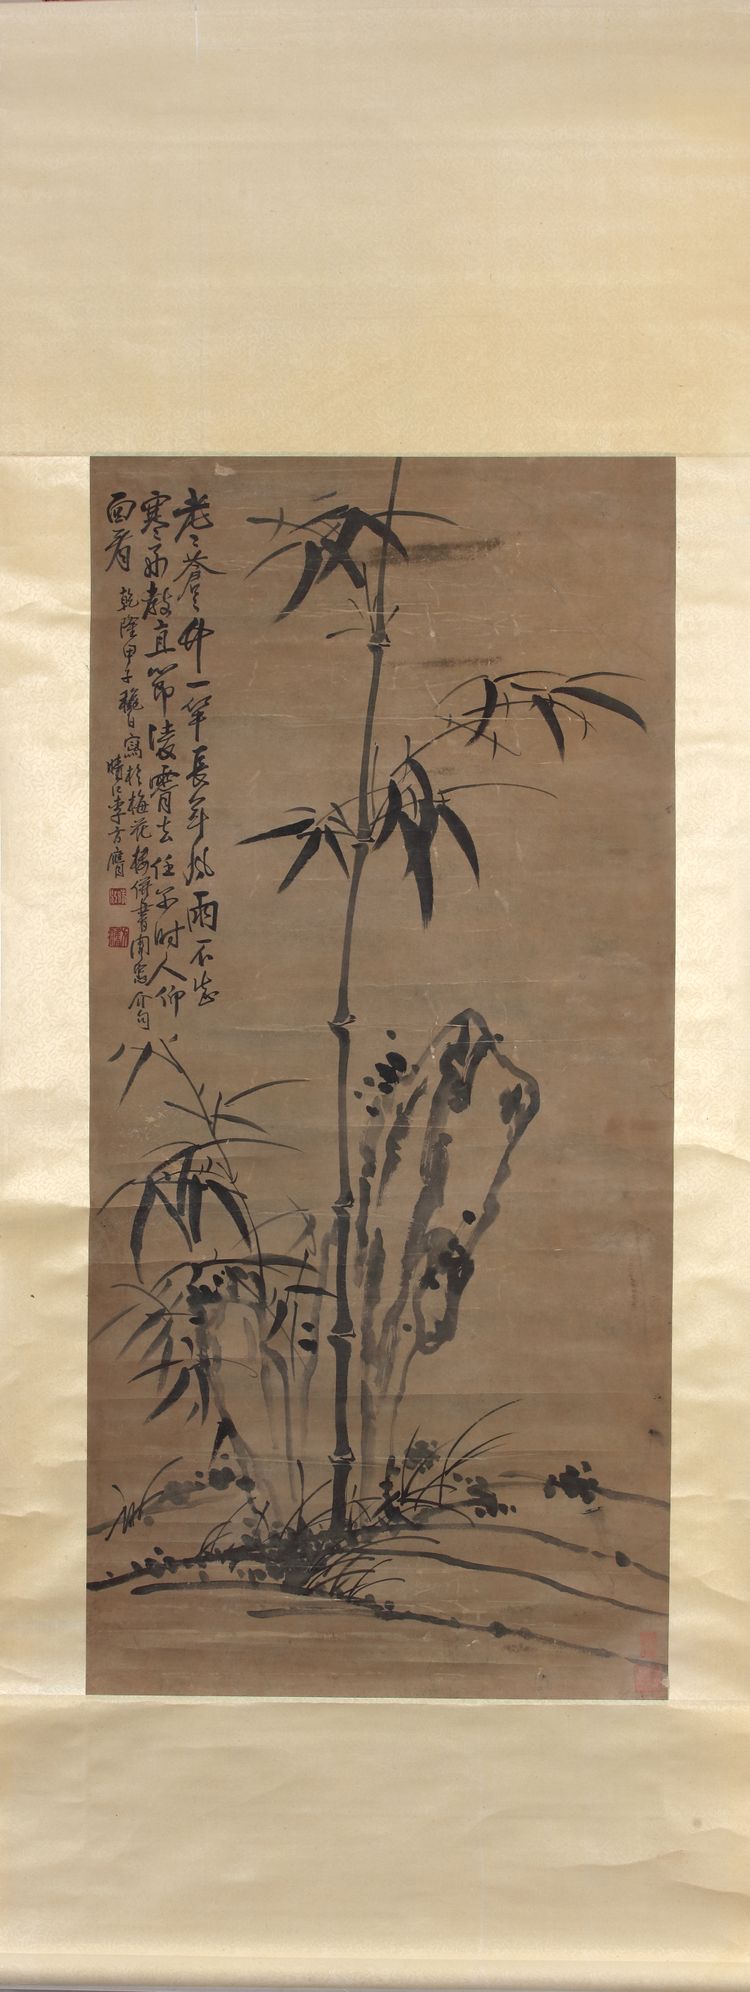 老々蒼々竹一竿長年風雨不知
寒好教直節凌霄去任尔時人仰
面看
乾隆甲子穐日寫於梅花楼併書南窓前句
晴江李方膺